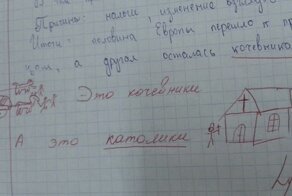 Причины: налоги, изменение
Итоги: половина Европы перешло к
а другая осталась кочевник
Это кочевники
А это католики